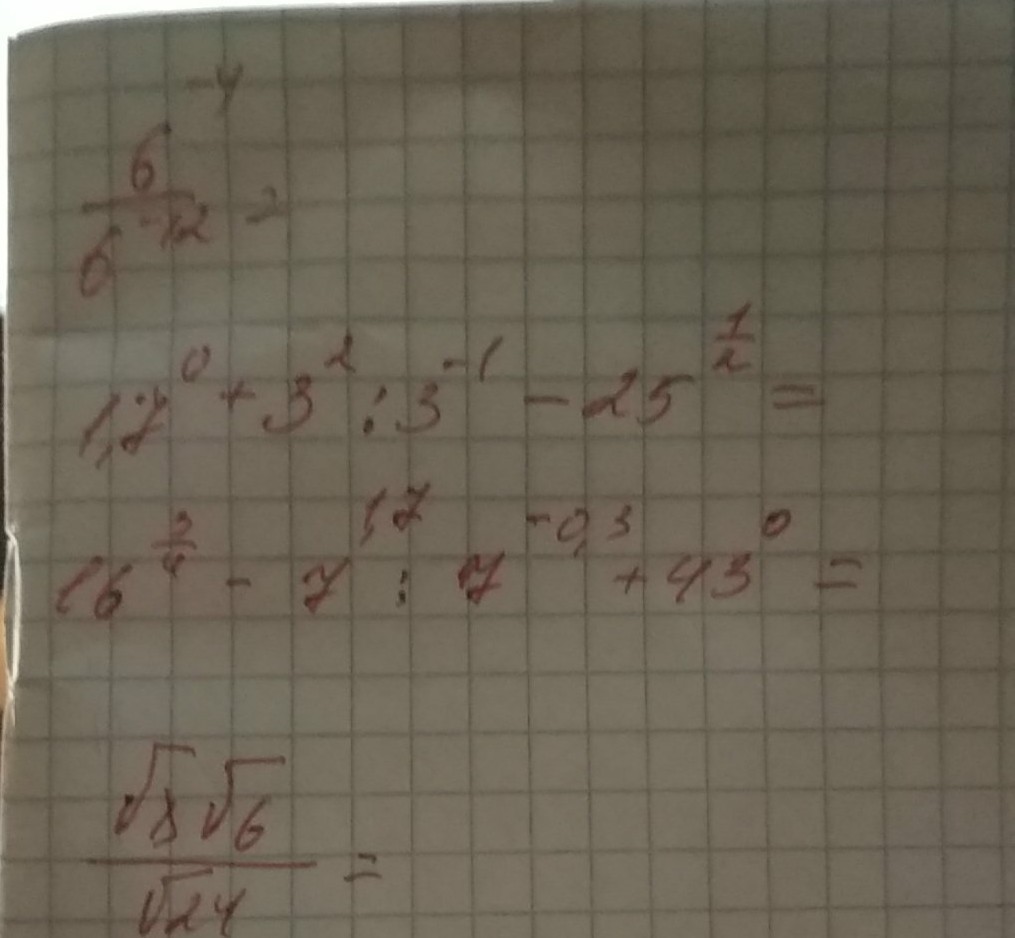 6^{-4} / 6^{-12} =
1,7^0 + 3^2 : 3^{-1} - 25^{1/2} =
16^{3/4} - 7^{1,7} : 7^{-0,3} + 43^0 =
√8 √6 / √24 =